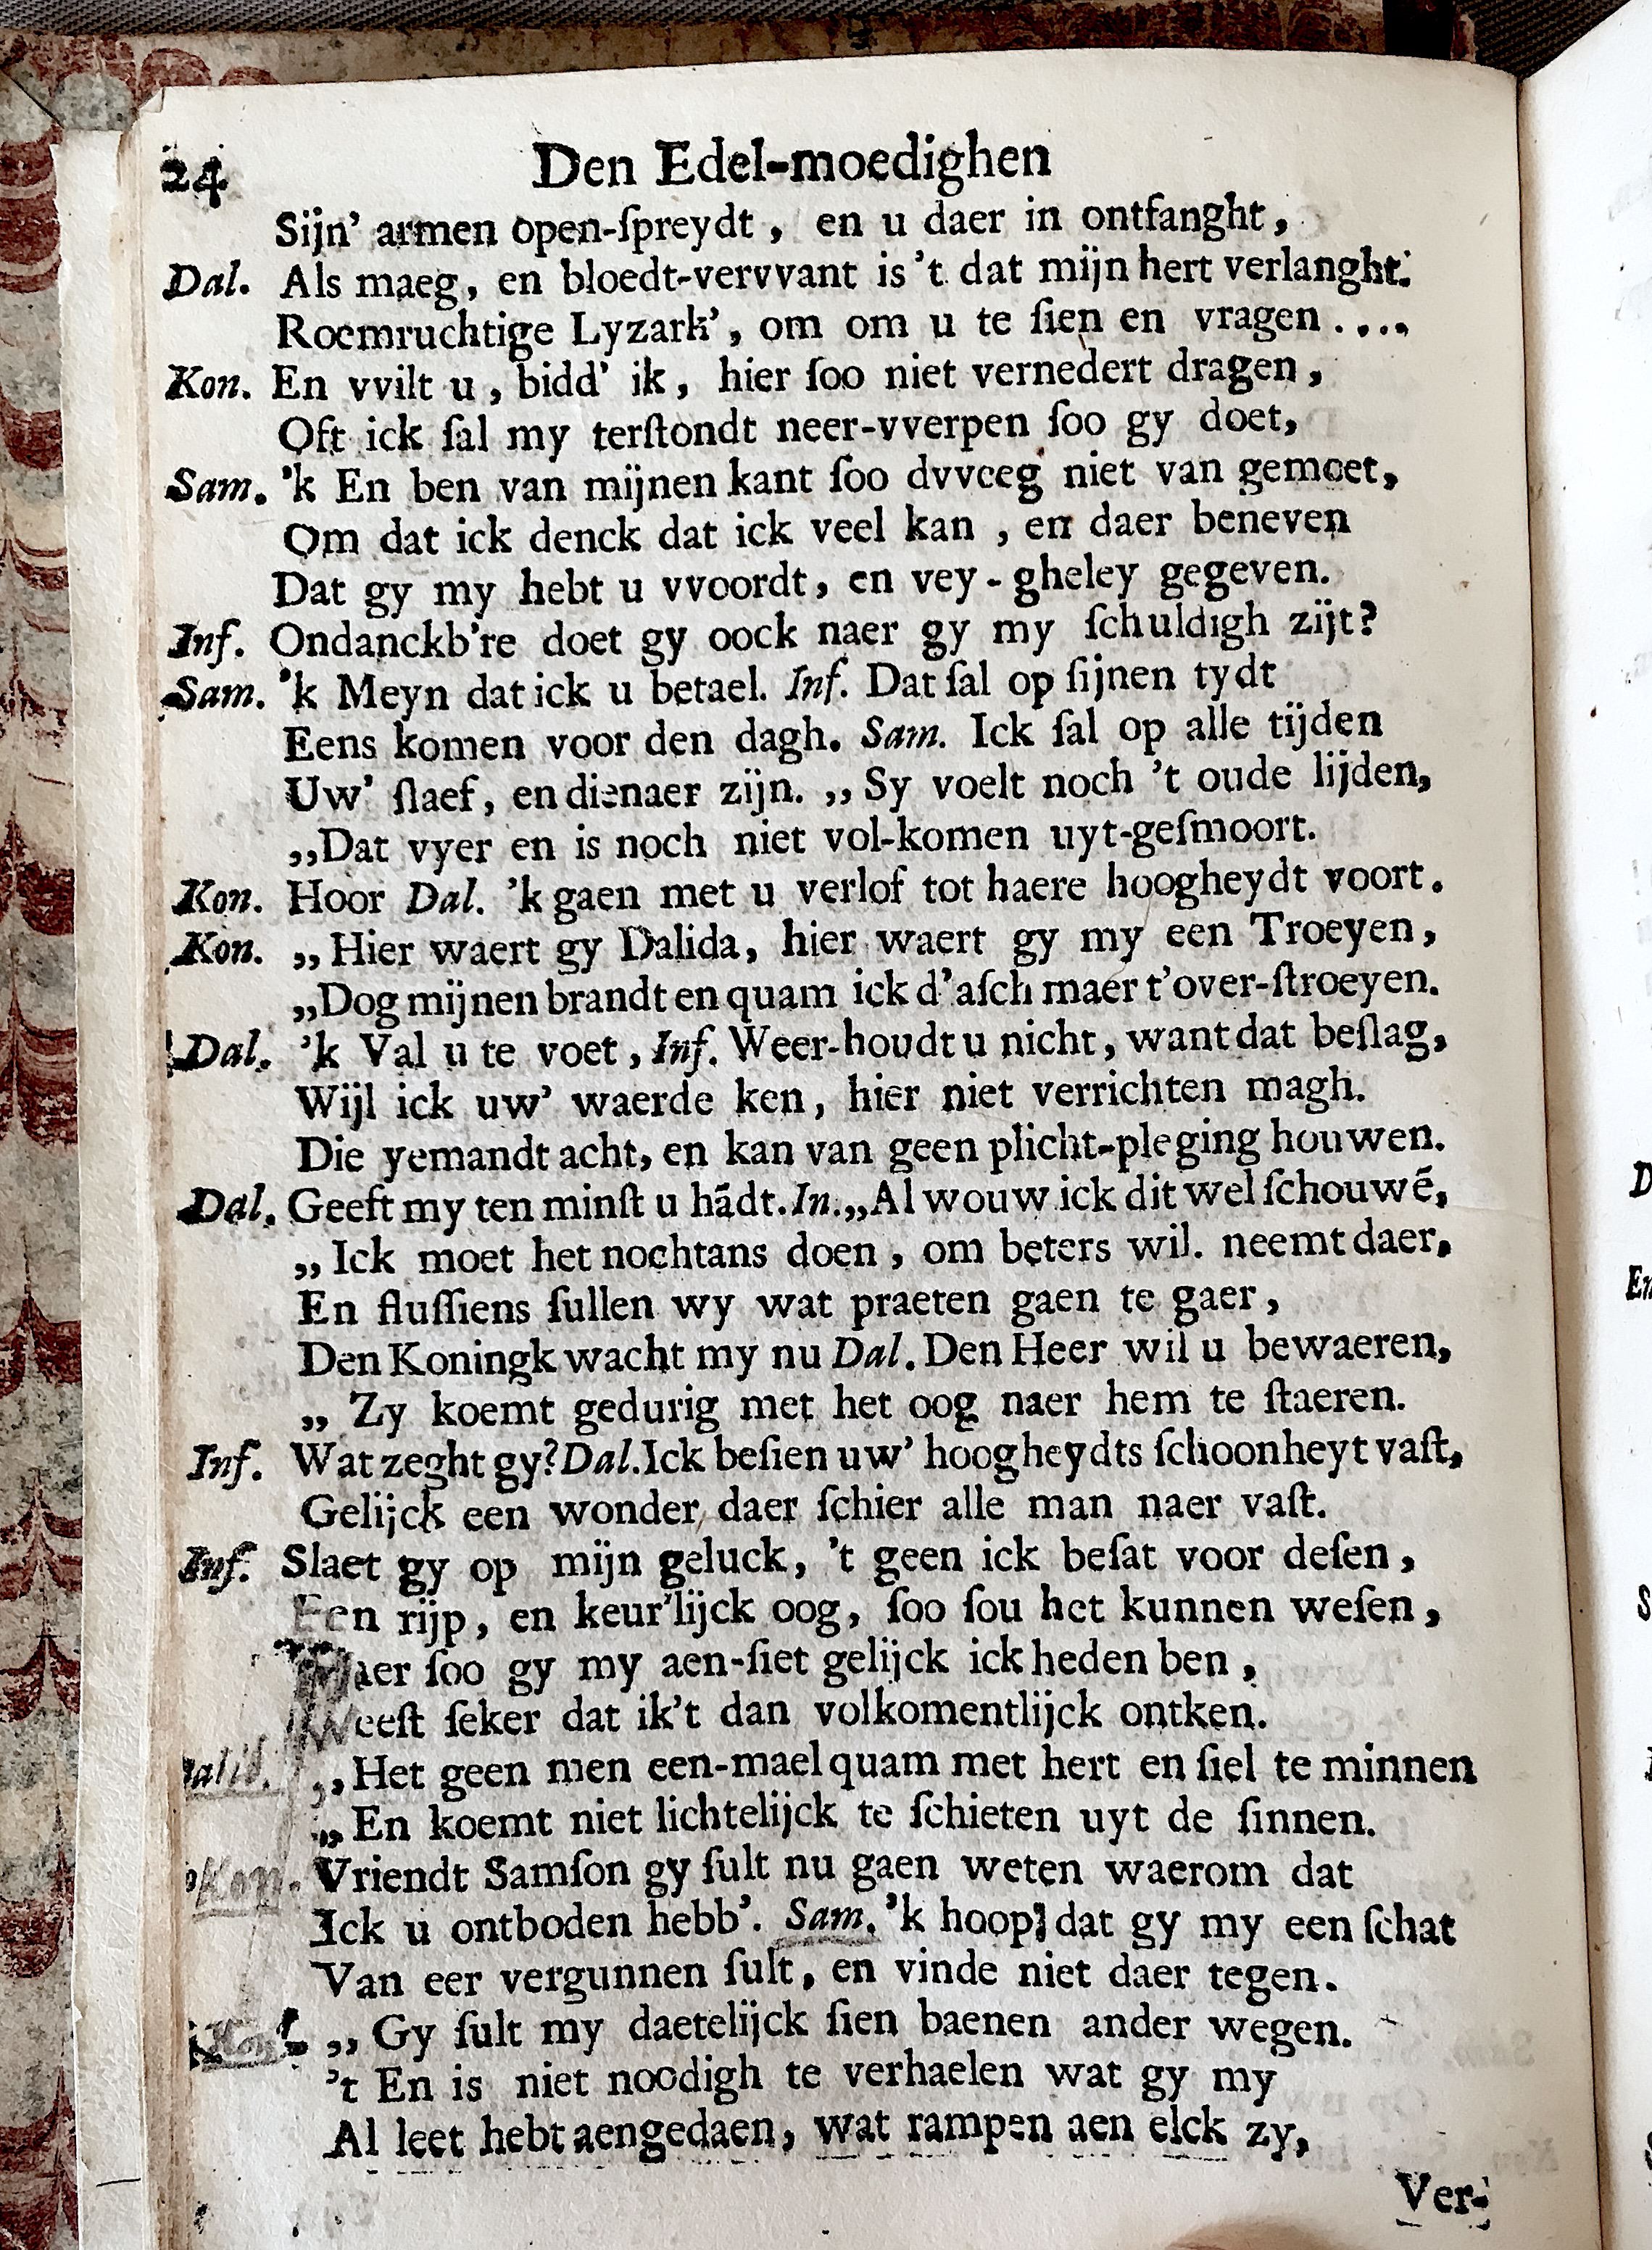 24 Den Edel-moedighen
Sijn' armen open-ſpreydt, en u daer in ontfanght,
Dal. Als maeg, en bloedt-vervvant is 't dat mijn hert verlanght.
Roemruchtige Lyzark', om om u te ſien en vragen....
Kon. En vvilt u, bidd' ik, hier ſoo niet vernedert dragen,
Oft ick ſal my terſtondt neer-vverpen ſoo gy doet,
Sam. 'k En ben van mijnen kant ſoo dvveeg niet van gemoet,
Om dat ick denck dat ick veel kan, en daer beneven
Dat gy my hebt u vvoordt, en vey-gheley gegeven.
Inf. Ondanckb're doet gy oock naer gy my ſchuldigh zijt?
Sam. 'k Meyn dat ick u betael. Inf. Dat ſal op ſijnen tydt
Eens komen voor den dagh. Sam. Ick ſal op alle tijden
Uw' ſlaef, en dienaer zijn. „ Sy voelt noch 't oude lijden,
„Dat vyer en is noch niet vol-komen uyt-geſmoort.
Kon. Hoor Dal. 'k gaen met u verlof tot haere hoogheydt voort.
Kon. „ Hier waert gy Dalida, hier waert gy my een Troeyen,
„Dog mijnen brandt en quam ick d'aſch maer t'over-ſtroeyen.
Dal. 'k Val u te voet, Inf. Weer-houdt u nicht, want dat beſlag,
Wijl ick uw' waerde ken, hier niet verrichten magh.
Die yemandt acht, en kan van geen plicht-pleging houwen.
Dal. Geeft my ten minſt u hãdt. In. „Al wouw ick dit wel ſchouwẽ,
„ Ick moet het nochtans doen, om beters wil. neemt daer,
En fluſſiens ſullen wy wat praeten gaen te gaer,
Den Koningk wacht my nu Dal. Den Heer wil u bewaeren,
„ Zy koemt gedurig met het oog naer hem te ſtaeren.
Inf. Wat zeght gy? Dal. Ick beſien uw' hoogheydts ſchoonheyt vaſt,
Gelijck een wonder, daer ſchier alle man naer vaſt.
Inf. Slaet gy op mijn geluck, 't geen ick beſat voor deſen,
Een rijp, en keur'lijck oog, ſoo ſou het kunnen weſen,
Maer ſoo gy my aen-ſiet gelijck ick heden ben,
Weeſt ſeker dat ik't dan volkomentlijck ontken.
„Het geen men een-mael quam met hert en ſiel te minnen
„ En koemt niet lichtelijck te ſchieten uyt de ſinnen.
Kon. Vriendt Samſon gy ſult nu gaen weten waerom dat
Ick u ontboden hebb'. Sam. 'k hoop dat gy my een ſchat
Van eer vergunnen ſult, en vinde niet daer tegen.
„ Gy ſult my daetelijck ſien baenen ander wegen.
't En is niet noodigh te verhaelen wat gy my
Al leet hebt aengedaen, wat rampen aen elck zy,
Ver-